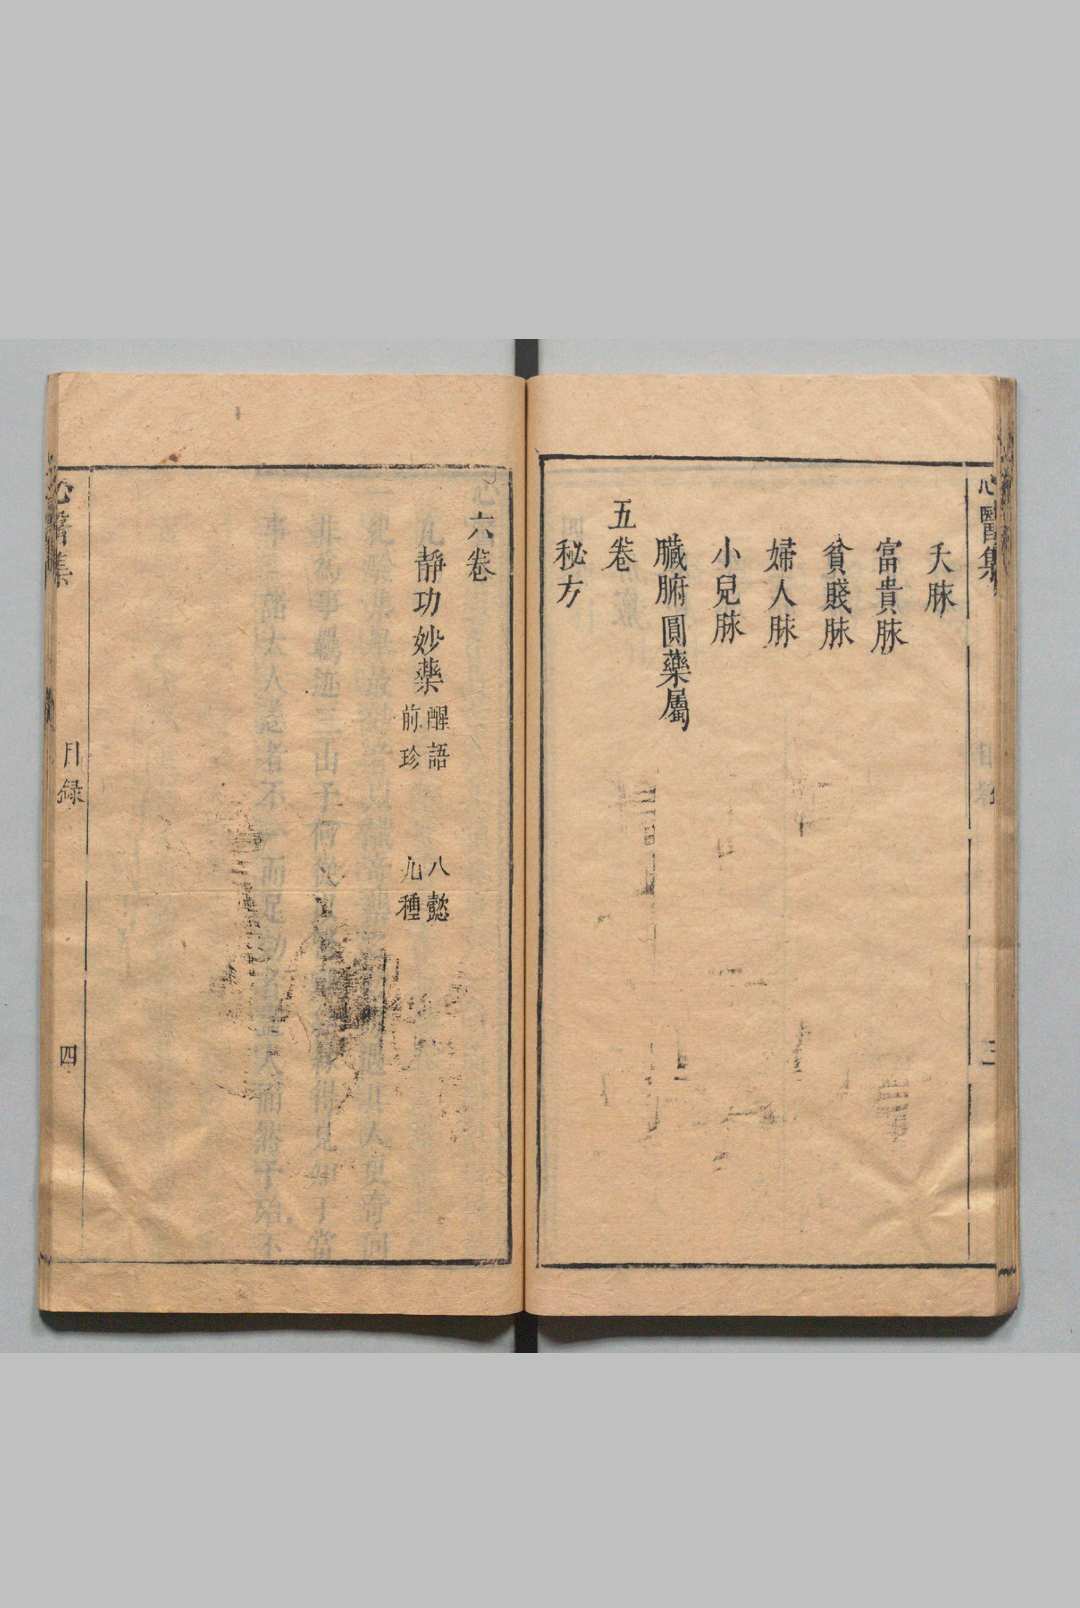 心醫集
三
夭脉
富貴脉
貧賤脉
婦人脉
小兒脉
臟腑圓藥屬
五卷
秘方
六卷
靜功妙藥
醒語
前珍
八懿
九種
心醫集
目録
四